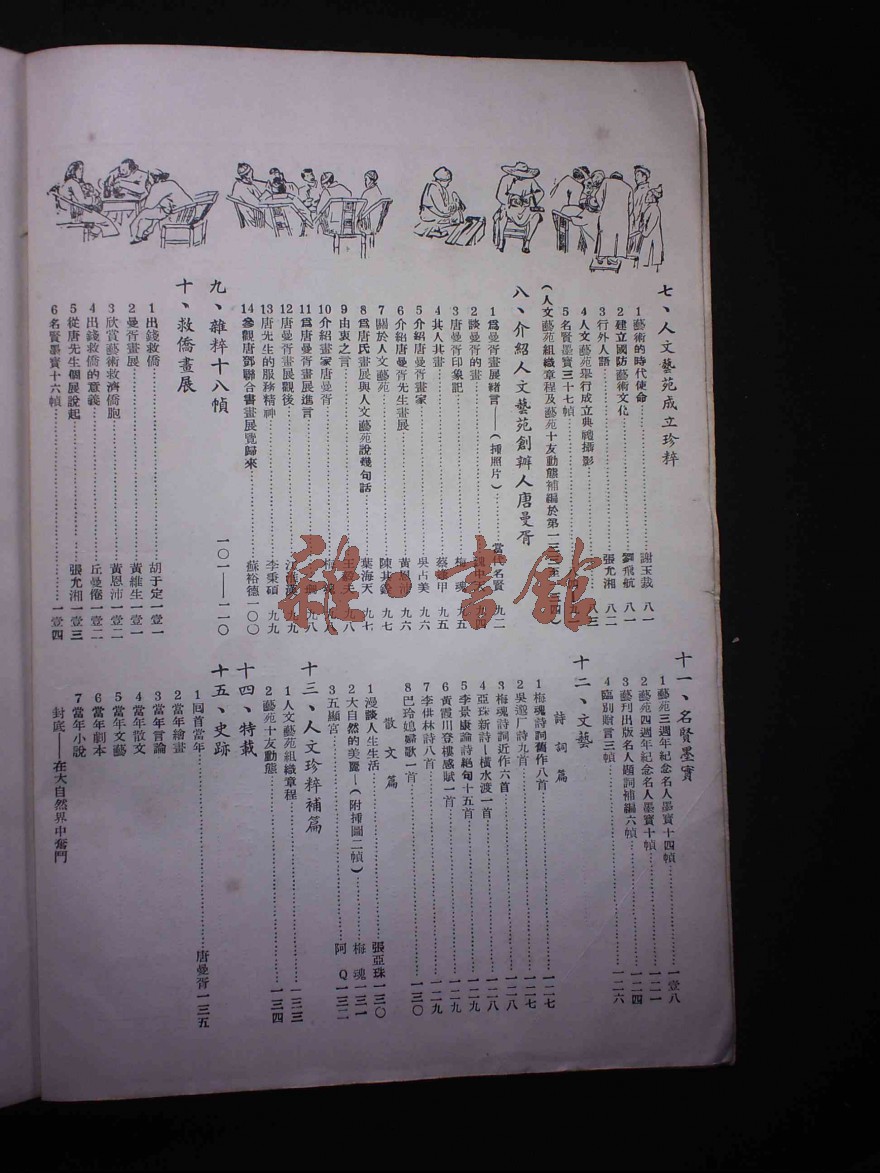 七、人文藝苑成立珍粹
1 藝術的時代使命 謝玉裁 八一
2 建立國防藝術文化 劉飛航 八一
3 行外人語 張尤湘 八二
4 人文藝苑舉行成立典禮攝影 八三
5 名賢墨寶三十七幀
(人文藝苑組織章程及藝苑十友動態補編於第一三三至一三四)
八、介紹人文藝苑創辦人唐曼胥
1 爲曼胥畫展緒言——(插照片) 當代名賢 九二
2 談曼胥的畫 九四
3 唐曼胥印象記 梅魂 九五
4 其人其畫 蔡 甲 九五
5 介紹唐曼胥畫家 吳占美 九六
6 介紹唐曼胥先生畫展 黃恩沛 九六
7 關於人文藝苑 陳其 九七
8 爲唐氏畫展與人文藝苑說幾句話 葉海天 九七
9 由衷之言 王 天 九八
10 介紹畫家唐曼胥 梅 九八
11 爲唐曼胥畫展進言 九八
12 唐曼胥畫展觀後 江 漢 九九
13 唐先生的服務精神 李秉碩 九九
14 參觀唐鄧聯合書畫展覽歸來 蘇裕德 一〇〇
九、雜粹十八幀 一〇一——一一〇
十、救僑畫展
1 出錢救僑 胡于定 一壹一
2 曼胥畫展 黃維生 一壹一
3 欣賞藝術救濟僑胞 黃恩沛 一壹二
4 出錢救僑的意義 丘曼倦 一壹二
5 從唐先生個展說起 張尤湘 一壹三
6 名賢墨寶十六幀 一壹四
十一、名賢墨寶
1 藝苑三週年紀念名人墨寶十四幀 一壹八
2 藝苑四週年紀念名人墨寶十幀 一二一
3 藝刊出版名人題詞補編六幀 一二四
4 臨別財言三幀 一二六
十二、文藝
詩詞篇
1 梅魂詩詞舊作八首 一二七
2 吳遯厂詩九首 一二七
3 梅魂詩詞近作六首 一二八
4 亞珠新詩—橫水渡一首 一二八
5 李景康論詩絕句十五首 一二九
6 黃霞川登樓感賦一首 一二九
7 李供林詩八首 一二九
8 巴玲媳歸歌一首 一三〇
散文篇
1 漫談人生生活 張亞珠 一三〇
2 大自然的美麗—(附插圖二幀) 梅魂 一三一
3 五顯宮 阿Q 一三二
十三、人文珍粹補篇
1 人文藝苑組織章程 一三三
2 藝苑十友動態 一三四
十四、特載
十五、史跡
1 囘首當年 唐曼胥 一三五
2 當年繪畫
3 當年言論
4 當年散文
5 當年文藝
6 當年劇本
7 當年小說
封底——在大自然界中奮鬥
雜書館